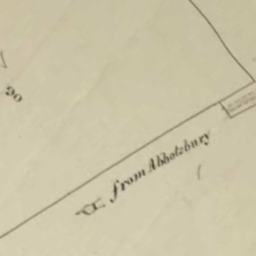 20
from Abbotsbury